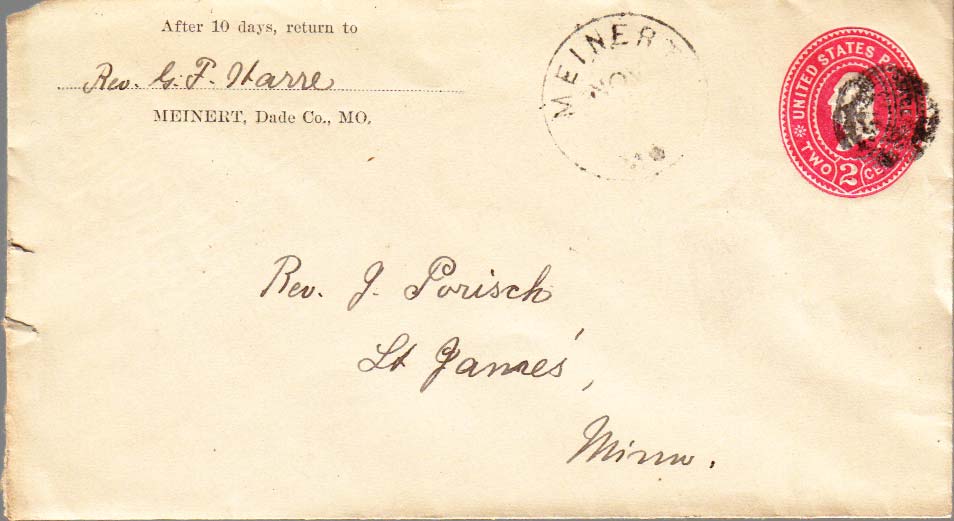 After 10 days, return to
Rev. G. F.
MEINERT, Dade Co., MO.
MEINERT
NOV
UNITED STATES
TWO 2
Rev. J. Porisch
St James',
Minn.